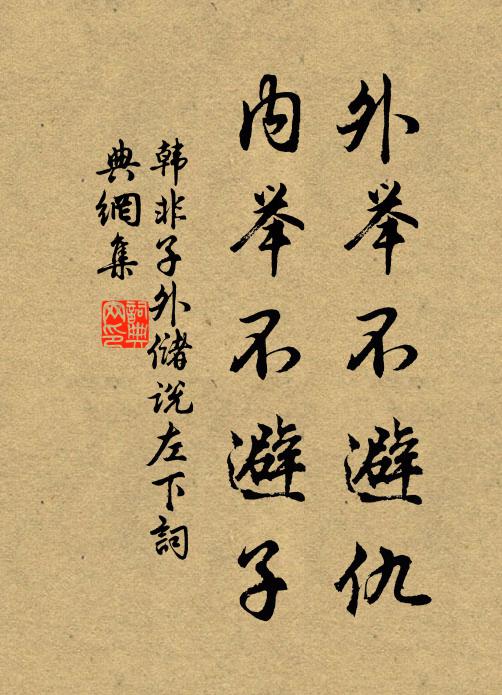 外举不避仇
内举不避子
韩非子外儲说左下詞
典網集
詞典网印